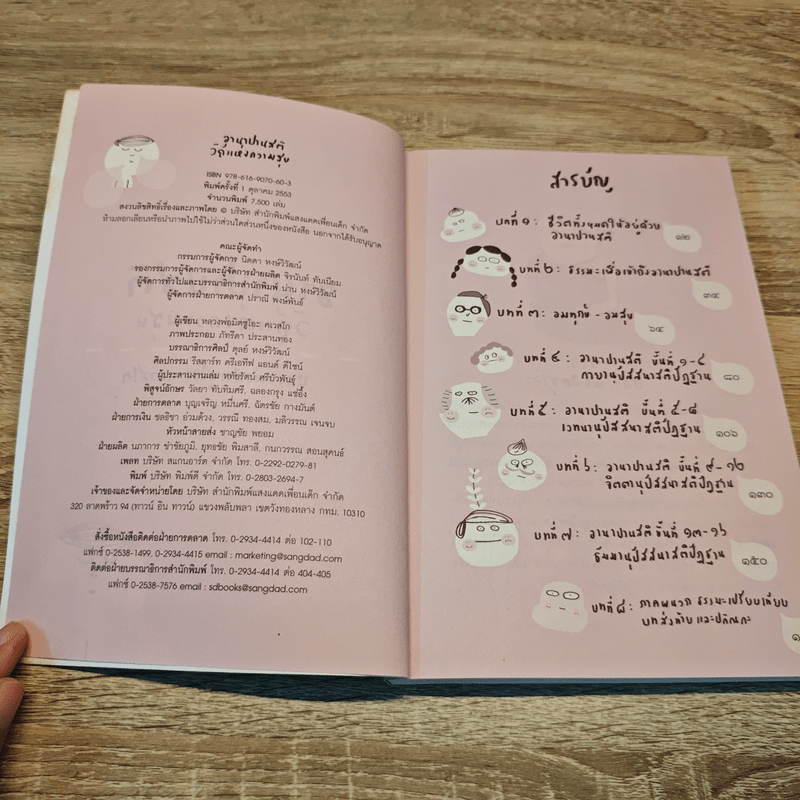 อานาปานสติ
วิถีแห่งความสุข
ISBN 978-616-9070-60-3
พิมพ์ครั้งที่ 1 ตุลาคม 2553
จำนวนพิมพ์ 7,500 เล่ม
สงวนลิขสิทธิ์เรื่องและภาพโดย © บริษัท สำนักพิมพ์แสงแดดเพื่อนเด็ก จำกัด
ห้ามลอกเลียนหรือนำภาพไปใช้ไม่ว่าส่วนใดส่วนหนึ่งของหนังสือ นอกจากได้รับอนุญาต
คณะผู้จัดทำ
กรรมการผู้จัดการ นิดดา หงษ์วิวัฒน์
รองกรรมการผู้จัดการและผู้จัดการฝ่ายผลิต จิรนันท์ ทับเนียม
ผู้จัดการทั่วไปและบรรณาธิการสำนักพิมพ์ น่าน หงษ์วิวัฒน์
ผู้จัดการฝ่ายการตลาด ปราณี พงษ์พันธ์
ผู้เขียน หลวงพ่อมิตซูโอะ คเวสโก
ภาพประกอบ ภัทรีดา ประสานทอง
บรรณาธิการศิลป์ ตุลย์ หงษ์วิวัฒน์
ศิลปกรรม รีสตาร์ท ครีเอทีฟ แอนด์ ดีไซน์
ผู้ประสานงานเล่ม หทัยรัตน์ ศรีบัวพันธุ์
พิสูจน์อักษร วัลยา ทับทิมศรี, ฉลองกรุง แซ่อึ้ง
ฝ่ายการตลาด บุญเจริญ หมื่นศรี, ฉัตรชัย กางมันต์
ฝ่ายการเงิน ชลธิชา อ่วมด้วง, วรรณี ทองสม, มลิวรรณ เจนจบ
หัวหน้าสายส่ง ชาญชัย พยอม
ฝ่ายผลิต นภาการ ขำชัยภูมิ, ยุทธชัย พิมสาลี, กนกวรรณ สอนสุคนธ์
เพลท บริษัท สแกนอาร์ต จำกัด โทร. 0-2292-0279-81
พิมพ์ บริษัท พิมพ์ดี จำกัด โทร. 0-2803-2694-7
เจ้าของและจัดจำหน่ายโดย บริษัท สำนักพิมพ์แสงแดดเพื่อนเด็ก จำกัด
320 ลาดพร้าว 94 (ทาวน์ อิน ทาวน์) แขวงพลับพลา เขตวังทองหลาง กทม. 10310
สั่งซื้อหนังสือติดต่อฝ่ายการตลาด โทร. 0-2934-4414 ต่อ 102-110
แฟกซ์ 0-2538-1499, 0-2934-4415 email : marketing@sangdad.com
ติดต่อฝ่ายบรรณาธิการสำนักพิมพ์ โทร. 0-2934-4414 ต่อ 404-405
แฟกซ์ 0-2538-7576 email : sdbooks@sangdad.com
สารบัญ
บทที่ ๑ : ชีวิตทั้งหมดให้อยู่ด้วย
อานาปานสติ
๑๒
บทที่ ๒ : ธรรมะเพื่อเข้าถึงอานาปานสติ
๓๔
บทที่ ๓ : อมทุกข์ - อมสุข
๖๔
บทที่ ๔ : อานาปานสติ ขั้นที่ ๑-๔
กายานุปัสสนาสติปัฏฐาน
๘๐
บทที่ ๕ : อานาปานสติ ขั้นที่ ๕-๘
เวทนานุปัสสนาสติปัฏฐาน
๑๐๖
บทที่ ๖ : อานาปานสติ ขั้นที่ ๙-๑๒
จิตตานุปัสสนาสติปัฏฐาน
๑๓๐
บทที่ ๗ : อานาปานสติ ขั้นที่ ๑๓-๑๖
ธัมมานุปัสสนาสติปัฏฐาน
๑๕๐
บทที่ ๘ : ภาคผนวก ธรรมะเปรียบเทียบ
บทส่งท้าย และปกิณกะ